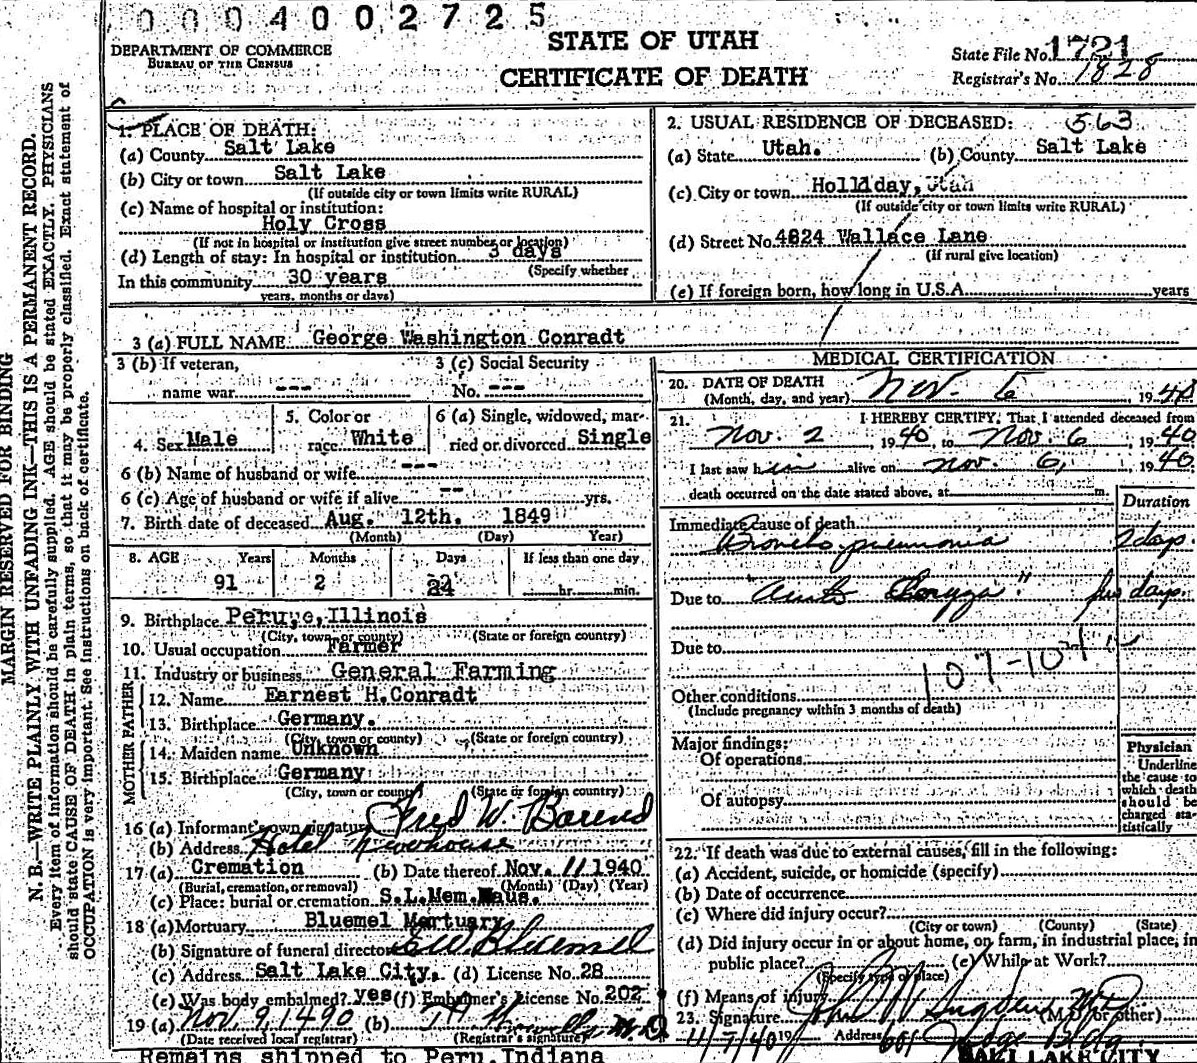 0004002725
DEPARTMENT OF COMMERCE
BUREAU OF THE CENSUS
STATE OF UTAH
CERTIFICATE OF DEATH
State File No. 1721
Registrar's No. 1828
MARGIN RESERVED FOR BINDING
N. B.—WRITE PLAINLY WITH UNFADING INK—THIS IS A PERMANENT RECORD.
Every item of information should be carefully supplied. AGE should be stated EXACTLY. PHYSICIANS
should state CAUSE OF DEATH in plain terms, so that it may be properly classified. Exact statement of
OCCUPATION is very important. See instructions on back of certificate.
1. PLACE OF DEATH:
(a) County Salt Lake
(b) City or town Salt Lake
(If outside city or town limits write RURAL)
(c) Name of hospital or institution:
Holy Cross
(If not in hospital or institution give street number or location)
(d) Length of stay: In hospital or institution 3 days
(Specify whether
In this community 30 years
years, months or days)
2. USUAL RESIDENCE OF DECEASED: 563
(a) State Utah. (b) County Salt Lake
(c) City or town Holliday, Utah
(If outside city or town limits write RURAL)
(d) Street No. 4624 Wallace Lane
(If rural give location)
(e) If foreign born, how long in U.S.A. years
3 (a) FULL NAME George Washington Conradt
3 (b) If veteran,
name war ---
3 (c) Social Security
No. ---
4. Sex Male
5. Color or
race White
6 (a) Single, widowed, mar-
ried or divorced Single
6 (b) Name of husband or wife ---
6 (c) Age of husband or wife if alive -- yrs.
7. Birth date of deceased Aug. 12th. 1849
(Month) (Day) Year)
8. AGE Years Months Days If less than one day
91 2 24 hr. min.
9. Birthplace Peruye, Illinois
(City, town or county) (State or foreign country)
10. Usual occupation Farmer
11. Industry or business General Farming
FATHER
12. Name Earnest H. Conradt
13. Birthplace Germany.
(City, town or county) (State or foreign country)
MOTHER
14. Maiden name Unknown
15. Birthplace Germany
(City, town or county (State or foreign country)
16 (a) Informant's own signature Fred W. Barend
(b) Address Hotel Newhouse
17 (a) Cremation (b) Date thereof Nov. 11 1940
(Burial, cremation, or removal) (Month) (Day) (Year)
(c) Place: burial or cremation S.L. Mem. Maus.
18 (a) Mortuary Bluemel Mortuary
(b) Signature of funeral director EW Bluemel
(c) Address Salt Lake City. (d) License No. 28
(e) Was body embalmed? yes (f) Embalmer's License No. 202
19 (a) Nov. 9, 1490 (b) M.D.
(Date received local registrar) (Registrar's signature)
Remains shipped to Peru, Indiana
MEDICAL CERTIFICATION
20. DATE OF DEATH
(Month, day, and year) Nov. 6, 1940
21. I HEREBY CERTIFY, That I attended deceased from
Nov. 2 1940, to Nov. 6, 1940
I last saw him alive on Nov. 6, 1940.
death occurred on the date stated above, at m.
Duration
Immediate cause of death
Broncho pneumonia 2 days.
Due to days
Due to
107-107
Other conditions
(Include pregnancy within 3 months of death)
Major findings:
Of operations
Of autopsy
Physician
Underline
the cause to
which death
should be
charged sta-
tistically
22. If death was due to external causes, fill in the following:
(a) Accident, suicide, or homicide (specify)
(b) Date of occurrence
(c) Where did injury occur?
(City or town) (County) (State)
(d) Did injury occur in or about home, on farm, in industrial place, in
public place? (e) While at Work?
(Specify type of place)
(f) Means of injury
23. Signature John Sugden MD (M.D. or other)
11/7/40 19 Address 601 Judge Bldg.
SALT LAKE CITY